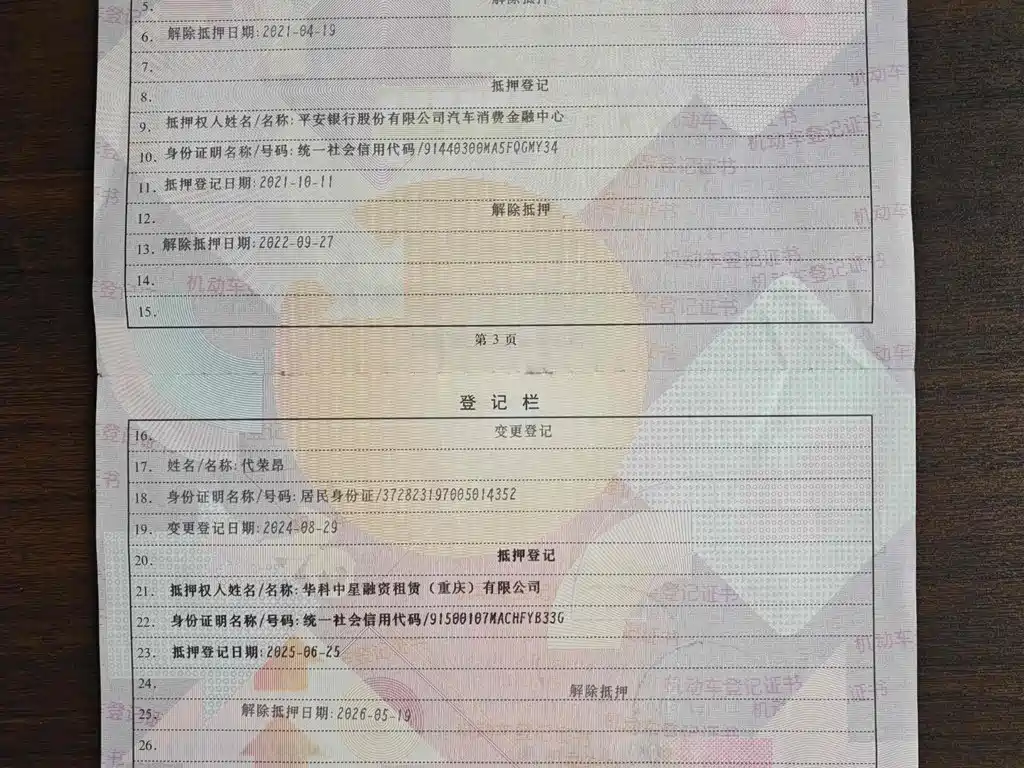 5. 解除抵押
6. 解除抵押日期:2021-04-19
7.
8. 抵押登记
9. 抵押权人姓名/名称:平安银行股份有限公司汽车消费金融中心
10. 身份证明名称/号码:统一社会信用代码/91440300MA5FQGMY34
11. 抵押登记日期:2021-10-11
12. 解除抵押
13. 解除抵押日期:2022-09-27
14.
15.
第 3 页
登记栏
16. 变更登记
17. 姓名/名称:代荣昂
18. 身份证明名称/号码:居民身份证/372823197005014352
19. 变更登记日期:2024-08-29
20. 抵押登记
21. 抵押权人姓名/名称:华科中星融资租赁（重庆）有限公司
22. 身份证明名称/号码:统一社会信用代码/91500107MACHFYB33G
23. 抵押登记日期:2025-06-25
24. 解除抵押
25. 解除抵押日期:2026-05-19
26.